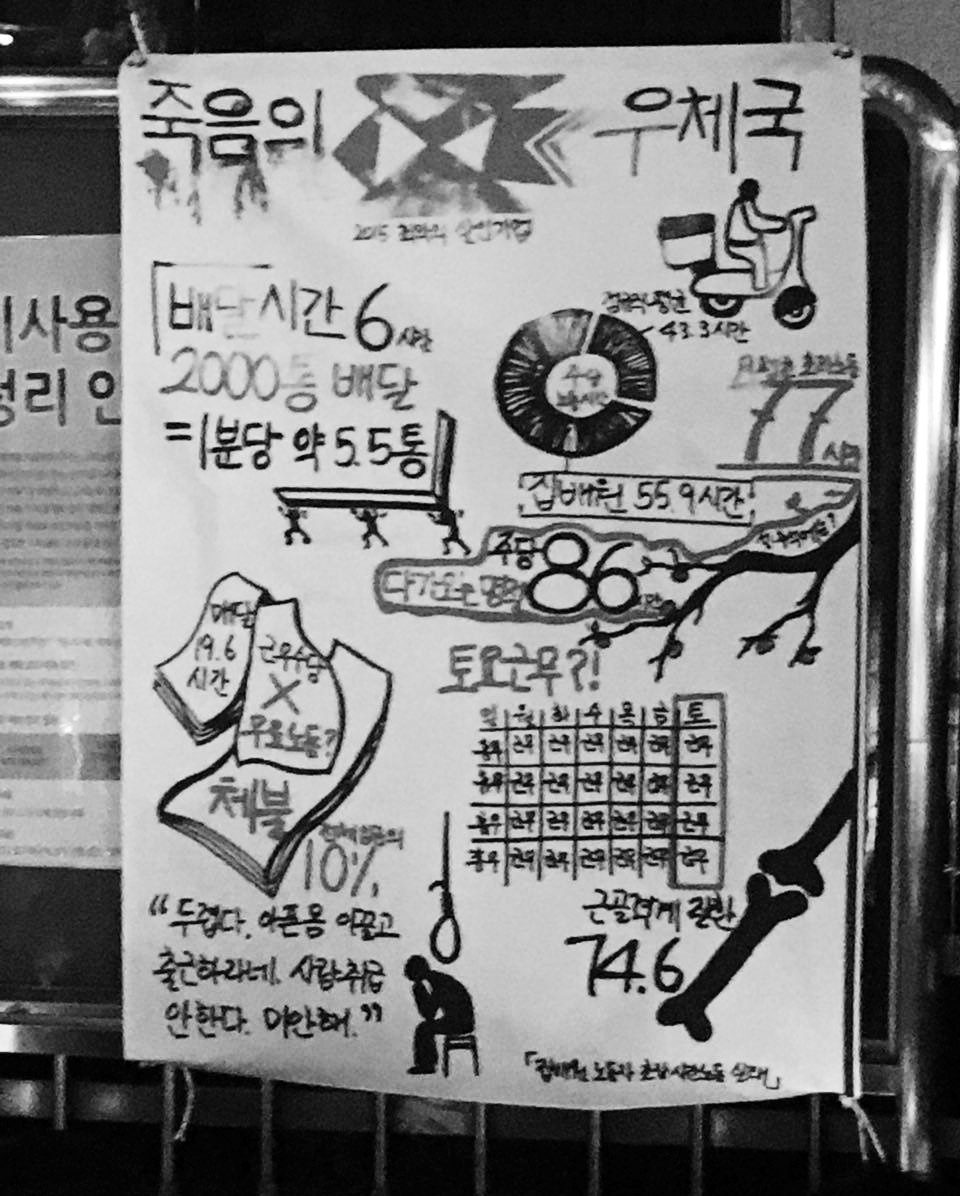 죽음의 우체국
2015 최악의 살인기업
배달시간 6시간
2000통 배달
=1분당 약 5.5통
정규직 평균
43.3시간
주당
노동시간
77시간
집배원 55.9시간
주당 86시간
배달
19.6
시간
근무수당
X
무료노동?
체불
10%
토요근무?!
일 월 화 수 목 금 토
휴무 근무 근무 근무 근무 근무 근무
휴무 근무 근무 근무 근무 근무 근무
휴무 근무 근무 근무 근무 근무 근무
휴무 근무 근무 근무 근무 근무 근무
근골격계 질환
74.6
“두렵다. 아픈몸 이끌고
출근하라네. 사람취급
안한다. 미안해.”
「집배원 노동자 초장시간노동 실태」